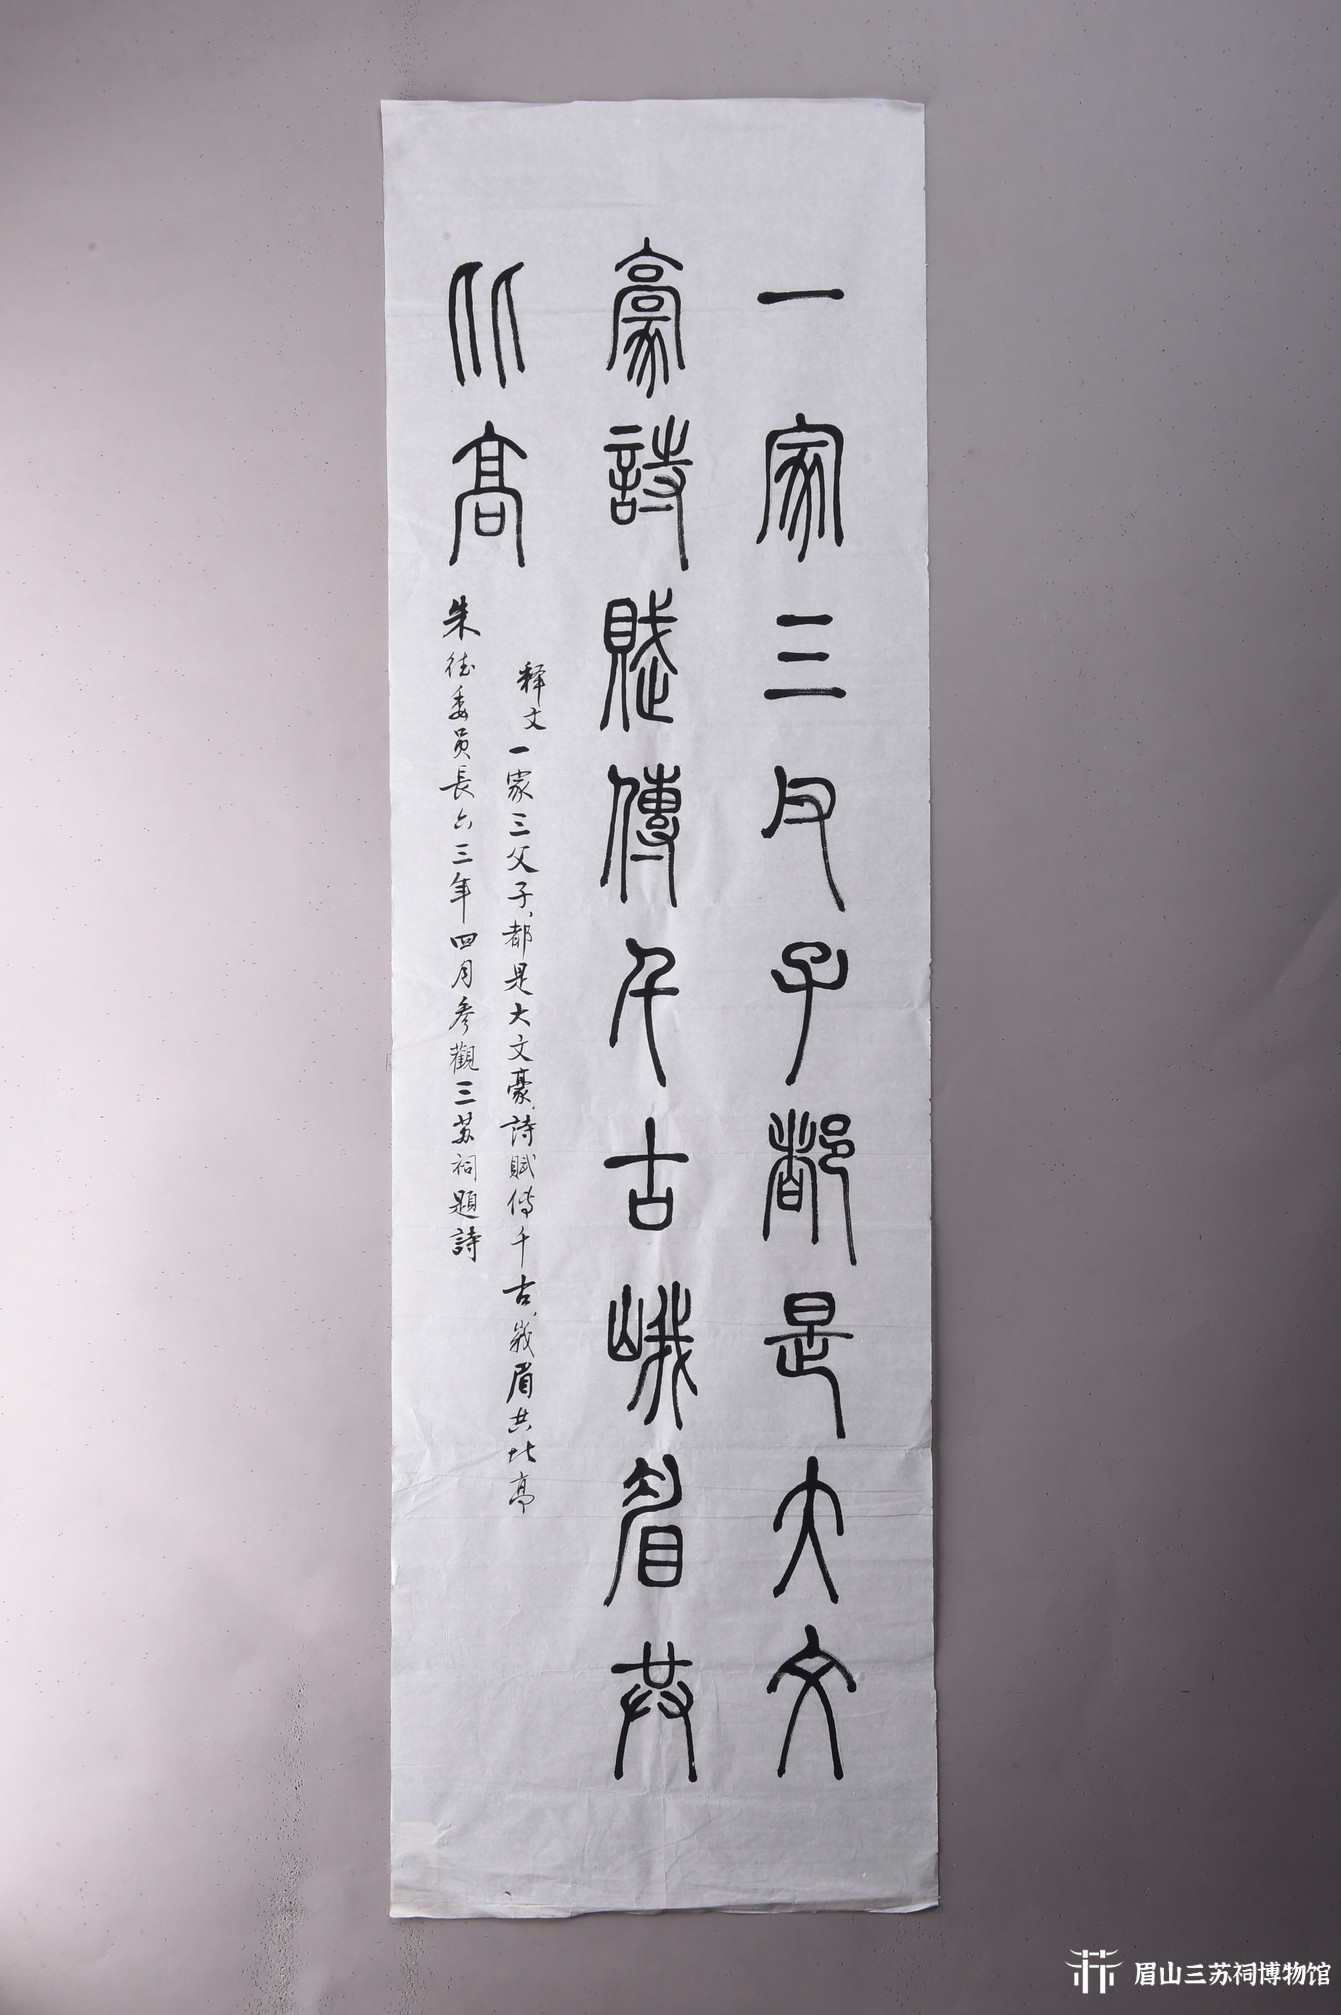 一家三父子都是大文
豪詩賦傳千古峨眉共
比高
释文一家三父子、都是大文豪、詩賦傳千古、峩眉共比高
朱德委员長六三年四月参觀三苏祠題詩
眉山三苏祠博物馆